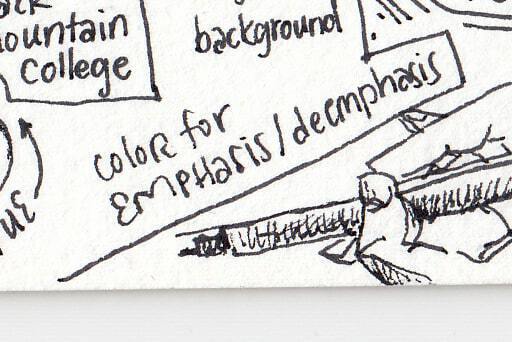 ountain
College
background
color for
Emphasis/deemphasis